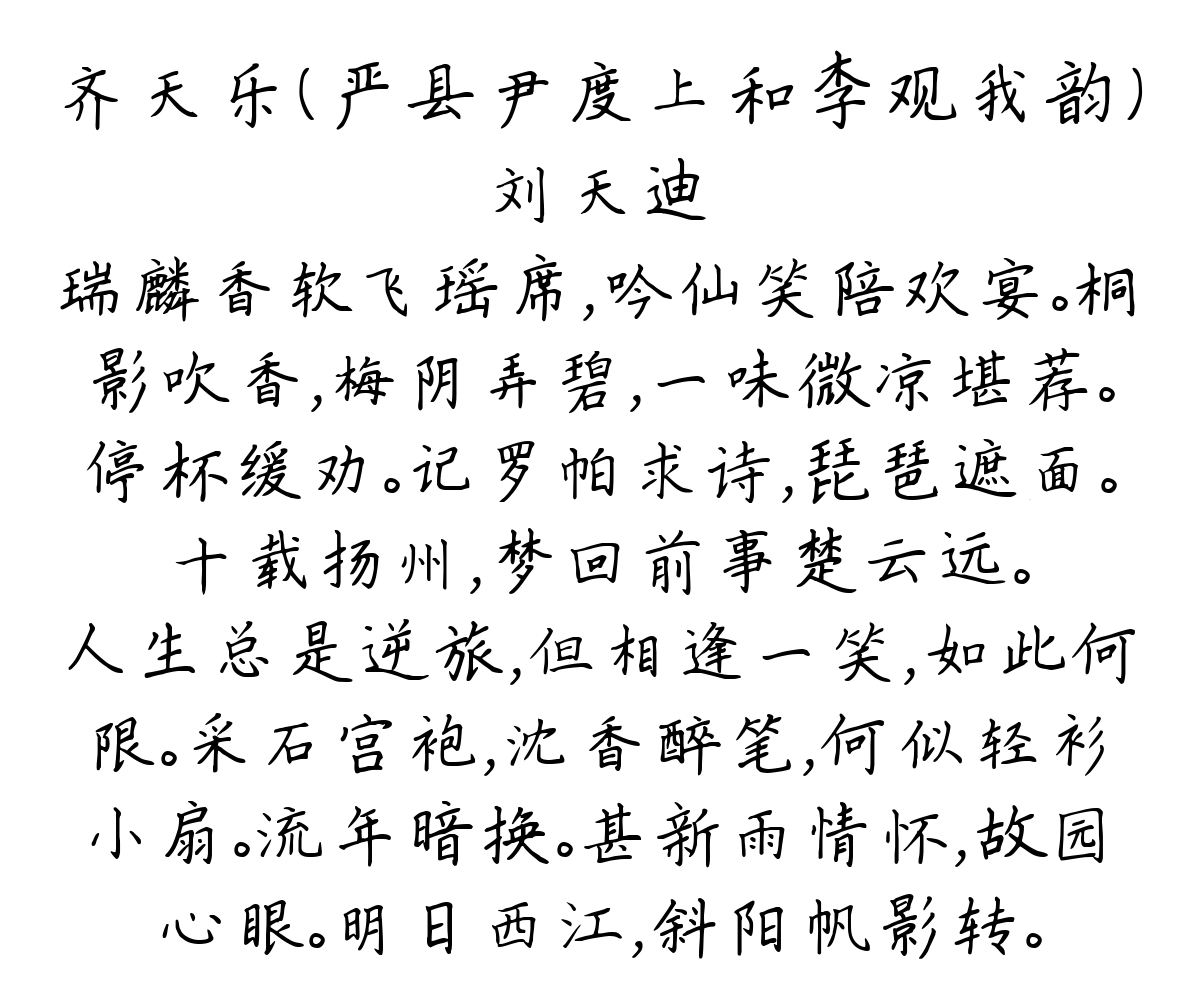 齐天乐(严县尹度上和李观我韵)
刘天迪
瑞麟香软飞瑶席,吟仙笑陪欢宴。桐
影吹香,梅阴弄碧,一味微凉堪荐。
停杯缓劝。记罗帕求诗,琵琶遮面。
十载扬州,梦回前事楚云远。
人生总是逆旅,但相逢一笑,如此何
限。采石宫袍,沈香醉笔,何似轻衫
小扇。流年暗换。甚新雨情怀,故园
心眼。明日西江,斜阳帆影转。